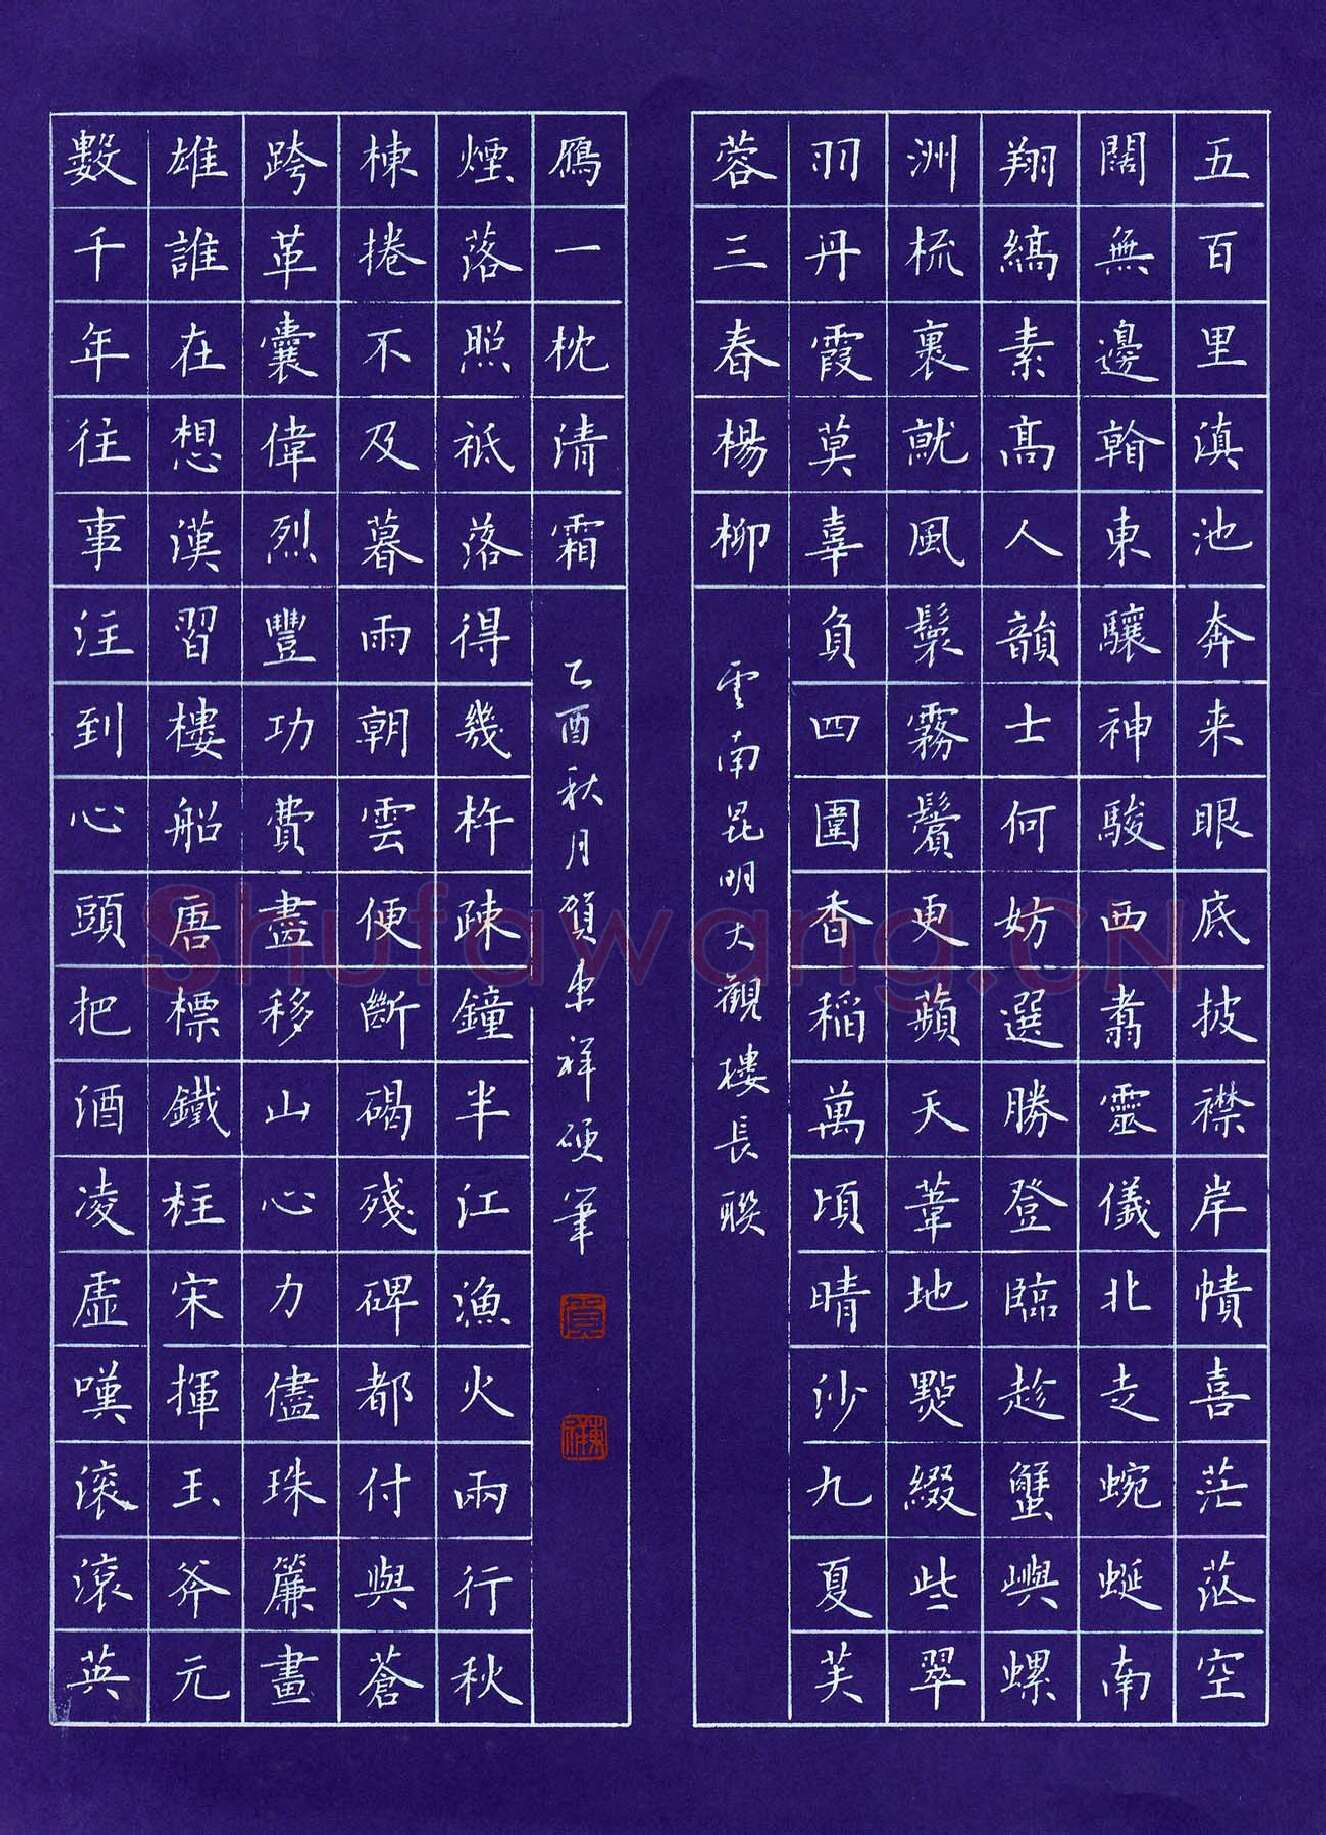 五百里滇池奔来眼底披襟岸幘喜茫茫空
闊無邊看東驤神駿西翥靈儀北走蜿蜒南
翔縞素高人韻士何妨選勝登臨趁蟹嶼螺
洲梳裹就風鬟霧鬢更蘋天葦地點綴些翠
羽丹霞莫辜負四圍香稻萬頃晴沙九夏芙
蓉三春楊柳
雲南昆明大觀樓長聯
數千年往事注到心頭把酒凌虛嘆滚滚英
雄誰在想漢習樓船唐標鐵柱宋揮玉斧元
跨革囊偉烈豐功費盡移山心力儘珠簾畫
棟捲不及暮雨朝雲便斷碣殘碑都付與蒼
煙落照祗落得幾杵疎鐘半江漁火兩行秋
鴈一枕清霜
乙酉秋月賀東祥硬筆
賀
東祥
Shufawang.CN